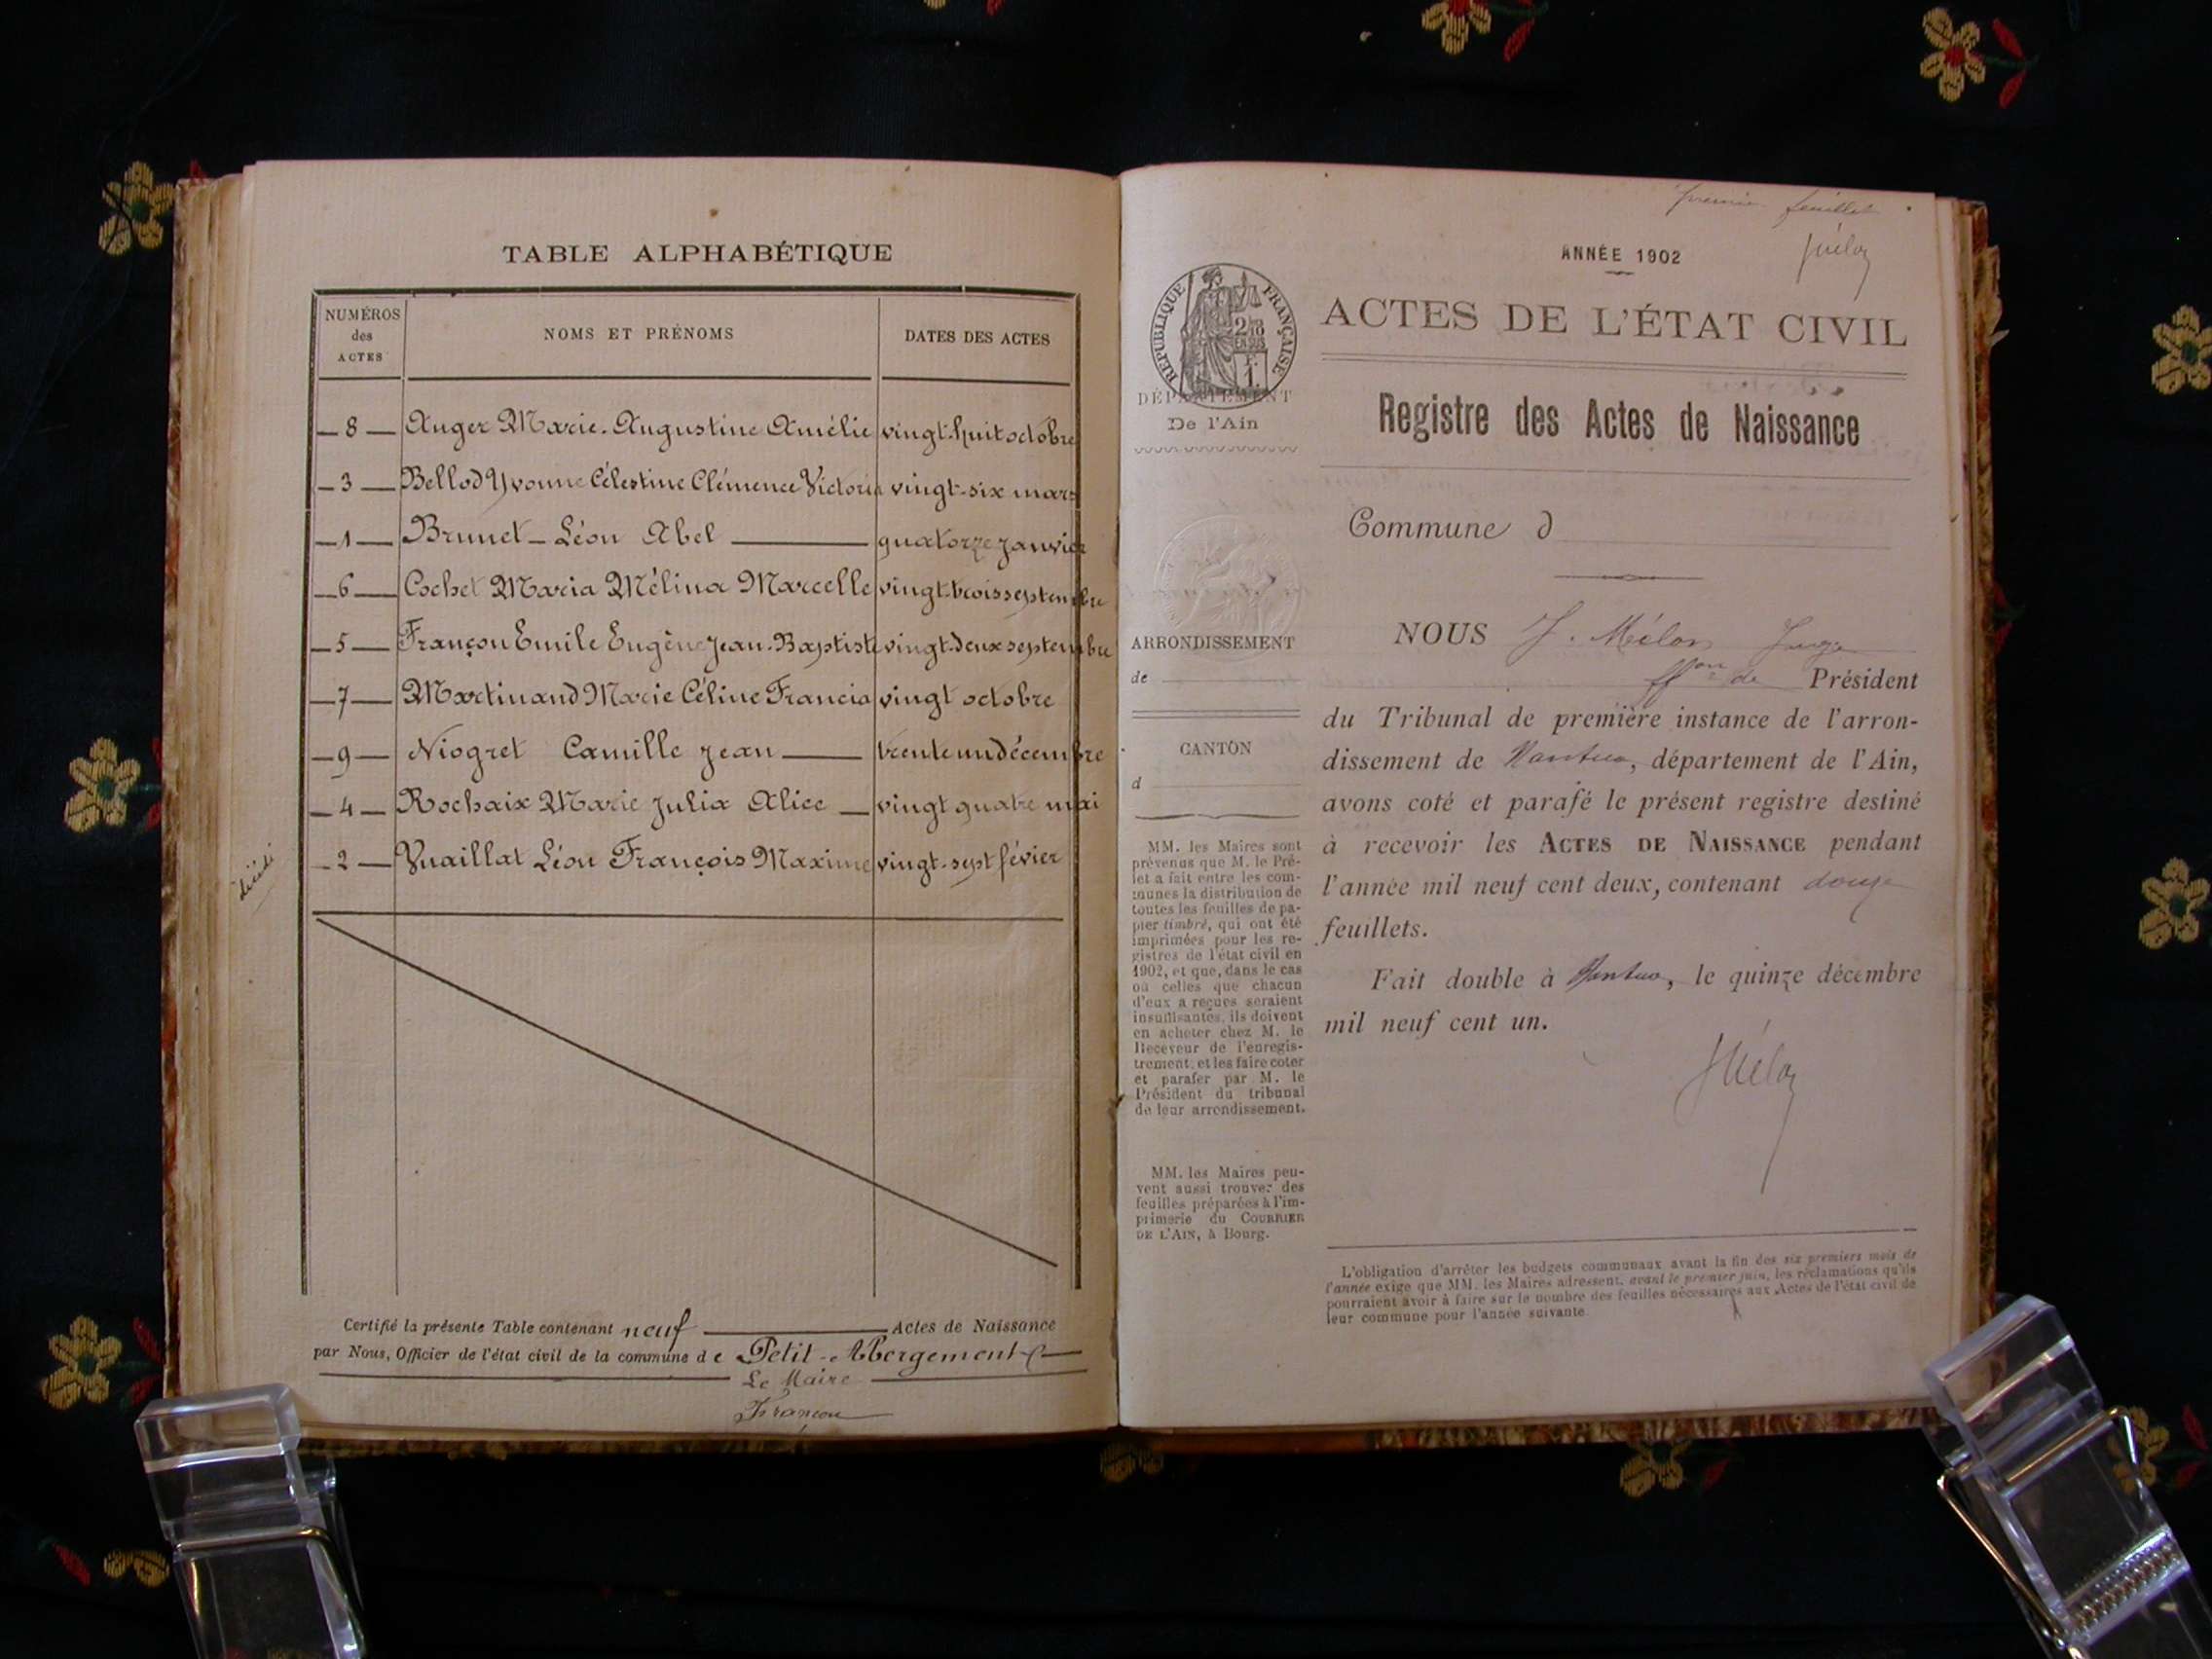 TABLE ALPHABÉTIQUE
NUMÉROS
des
ACTES
NOMS ET PRÉNOMS
DATES DES ACTES
8 Auger Marie-Augustine Amélie vingt-huit octobre
3 Bellod Yvonne Célestine Clémence Victoria vingt-six mars
1 Brunet Léon Abel quatorze janvier
6 Cochet Maria Mélina Marcelle vingt-trois septembre
5 Françon Emile Eugène Jean-Baptiste vingt-deux septembre
7 Martinand Marie Céline Francia vingt octobre
9 Niogret Camille Jean trente un décembre
4 Rochaix Marie Julia Alice vingt quatre mai
2 Vuaillat Léon François Maxime vingt-sept févier
Certifié la présente Table contenant neuf Actes de Naissance
par Nous, Officier de l'état civil de la commune de Petit-Abergement
Le Maire
Françon
premier feuillet
ANNÉE 1902
RÉPUBLIQUE FRANÇAISE
ACTES DE L'ÉTAT CIVIL
DÉPARTEMENT
De l'Ain
Registre des Actes de Naissance
Commune d
ARRONDISSEMENT
de
CANTON
d
MM. les Maires sont
prévenus que M. le Pré-
fet a fait entre les com-
munes la distribution de
toutes les feuilles de pa-
pier timbré, qui ont été
imprimées pour les re-
gistres de l'état civil en
1902, et que, dans le cas
où celles que chacun
d'eux a reçues seraient
insuffisantes, ils doivent
en acheter chez M. le
Receveur de l'enregis-
trement, et les faire coter
et parafer par M. le
Président du tribunal
de leur arrondissement.
MM. les Maires peu-
vent aussi trouver des
feuilles préparées à l'im-
primerie du COURRIER
DE L'AIN, à Bourg.
NOUS J. Mélon Juge
ffon de Président
du Tribunal de première instance de l'arron-
dissement de Nantua, département de l'Ain,
avons coté et parafé le présent registre destiné
à recevoir les ACTES DE NAISSANCE pendant
l'année mil neuf cent deux, contenant douze
feuillets.
Fait double à Nantua, le quinze décembre
mil neuf cent un.
L'obligation d'arrêter les budgets communaux avant la fin des six premiers mois de
l'année exige que MM. les Maires adressent, avant le premier juin, les réclamations qu'ils
pourraient avoir à faire sur le nombre des feuilles nécessaires aux Actes de l'état civil de
leur commune pour l'année suivante